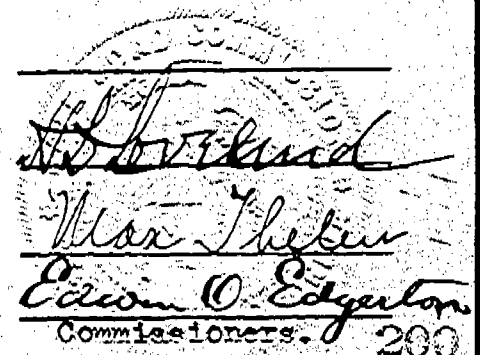 H D Loveland
Max Thelen
Edwin O. Edgerton
Commissioners.